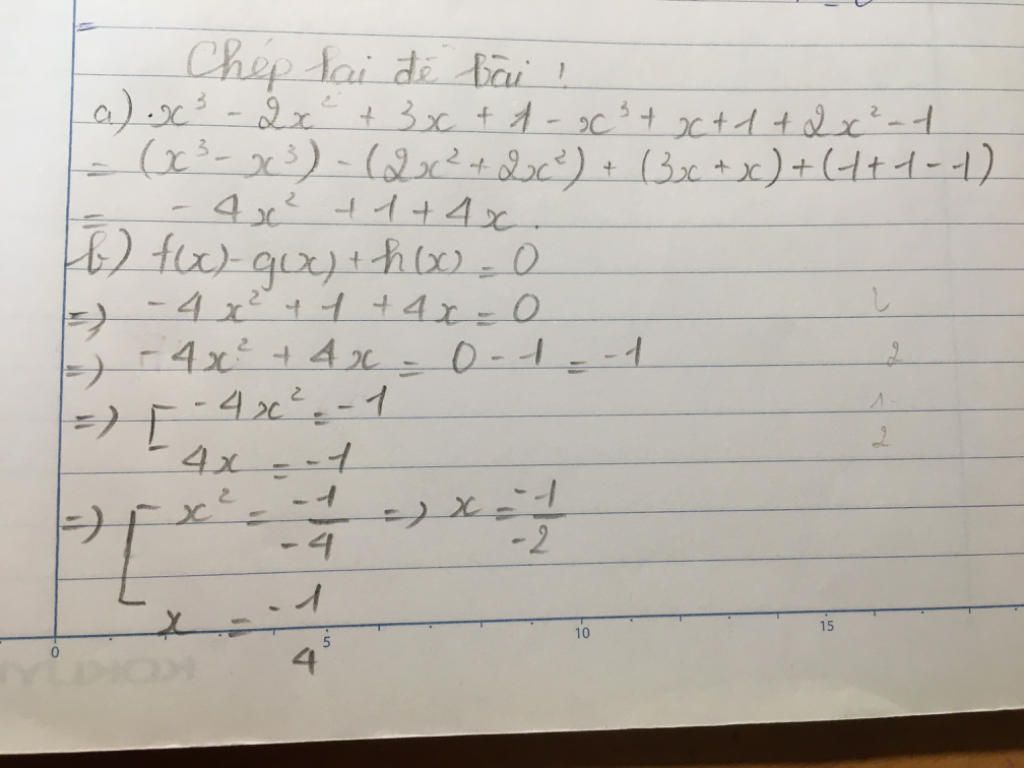 Chép lại đề bài !
a) . x³ - 2x² + 3x + 1 - x³ + x + 1 + 2x² - 1
= (x³ - x³) - (2x² + 2x²) + (3x + x) + (1 + 1 - 1)
= - 4x² + 1 + 4x.
b) f(x) - g(x) + h(x) = 0
=> - 4x² + 1 + 4x = 0
=> - 4x² + 4x = 0 - 1 = -1
=> [ - 4x² = -1
4x = -1
=> [ x² = -1/-4 => x = -1/-2
x = -1/4
0 5 10 15